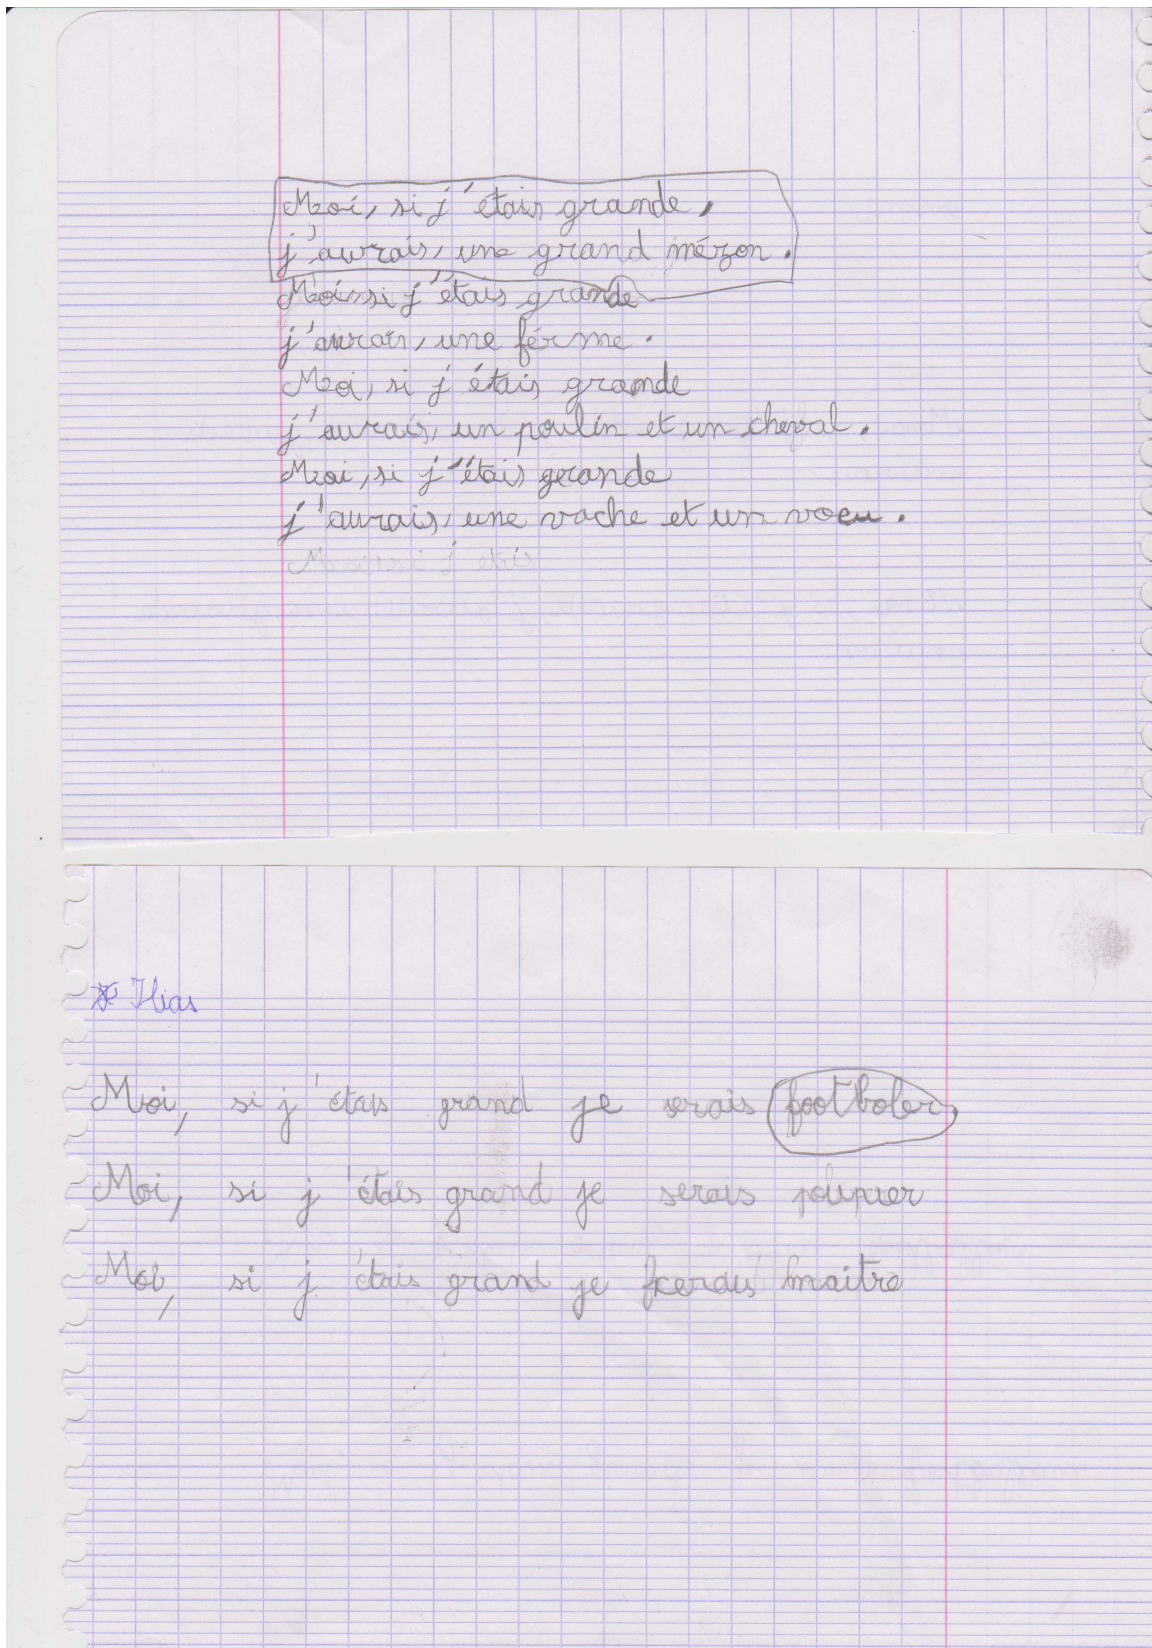 Moi, si j'étais grande,
j'aurais, une grand mézon.
Moi, si j'étais grande
j'aurais, une férme.
Moi, si j'étais grande
j'aurais, un poulin et un cheval.
Moi, si j'étais grande
j'aurais, une vache et un voeu.
Moi, si j etais
* Ilias
Moi, si j'étais grand je serais footboler,
Moi, si j'étais grand je serais
Moi, si j'étais grand je maitre